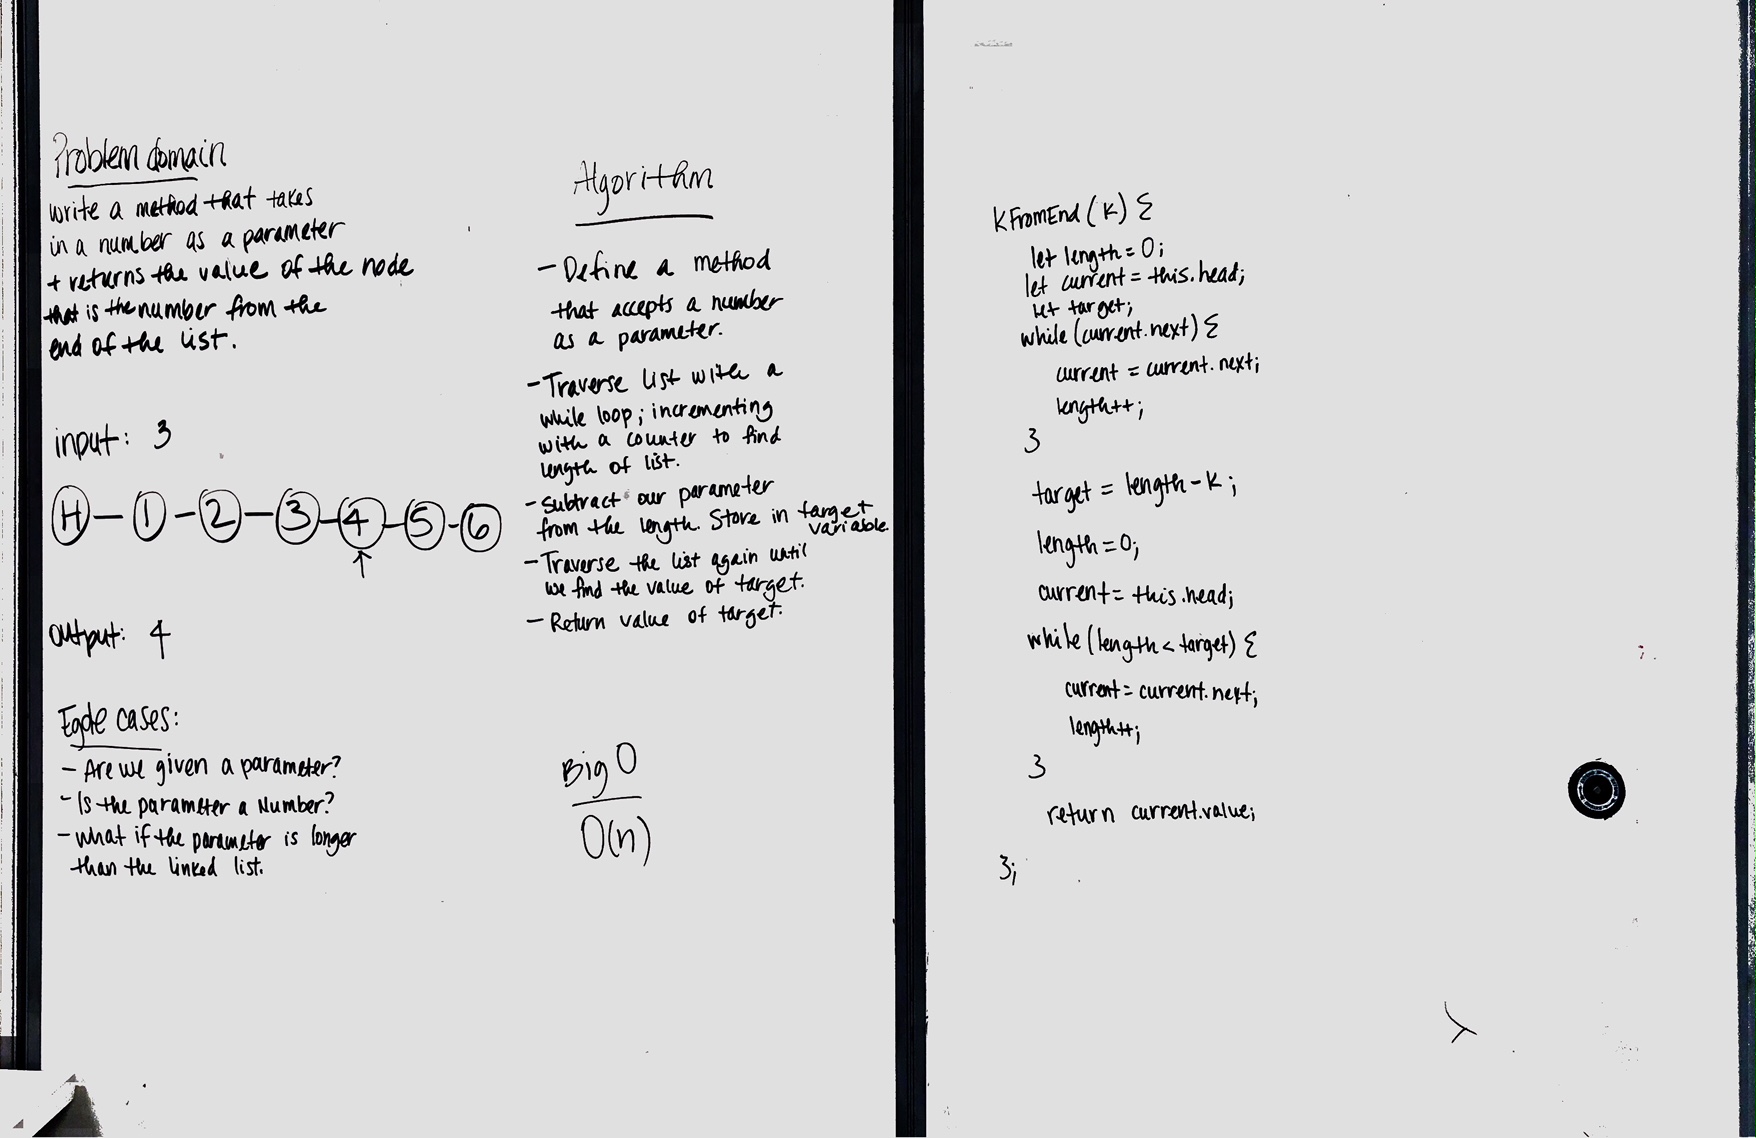 Problem domain
write a method that takes
in a number as a parameter
+ returns the value of the node
that is the number from the
end of the list.
input: 3
H - 1 - 2 - 3 - 4 - 5 - 6
↑
output: 4
Egde cases:
- Are we given a parameter?
- Is the parameter a Number?
- what if the parameter is longer
than the linked list.
Algorithm
- Define a method
that accepts a number
as a parameter.
- Traverse list with a
while loop; incrementing
with a counter to find
length of list.
- Subtract our parameter
from the length. Store in target
variable.
- Traverse the list again until
we find the value of target.
- Return value of target.
Big O
O(n)
kFromEnd(k) {
let length = 0;
let current = this.head;
let target;
while (current.next) {
current = current.next;
length++;
}
target = length - k;
length = 0;
current = this.head;
while (length < target) {
current = current.next;
length++;
}
return current.value;
};